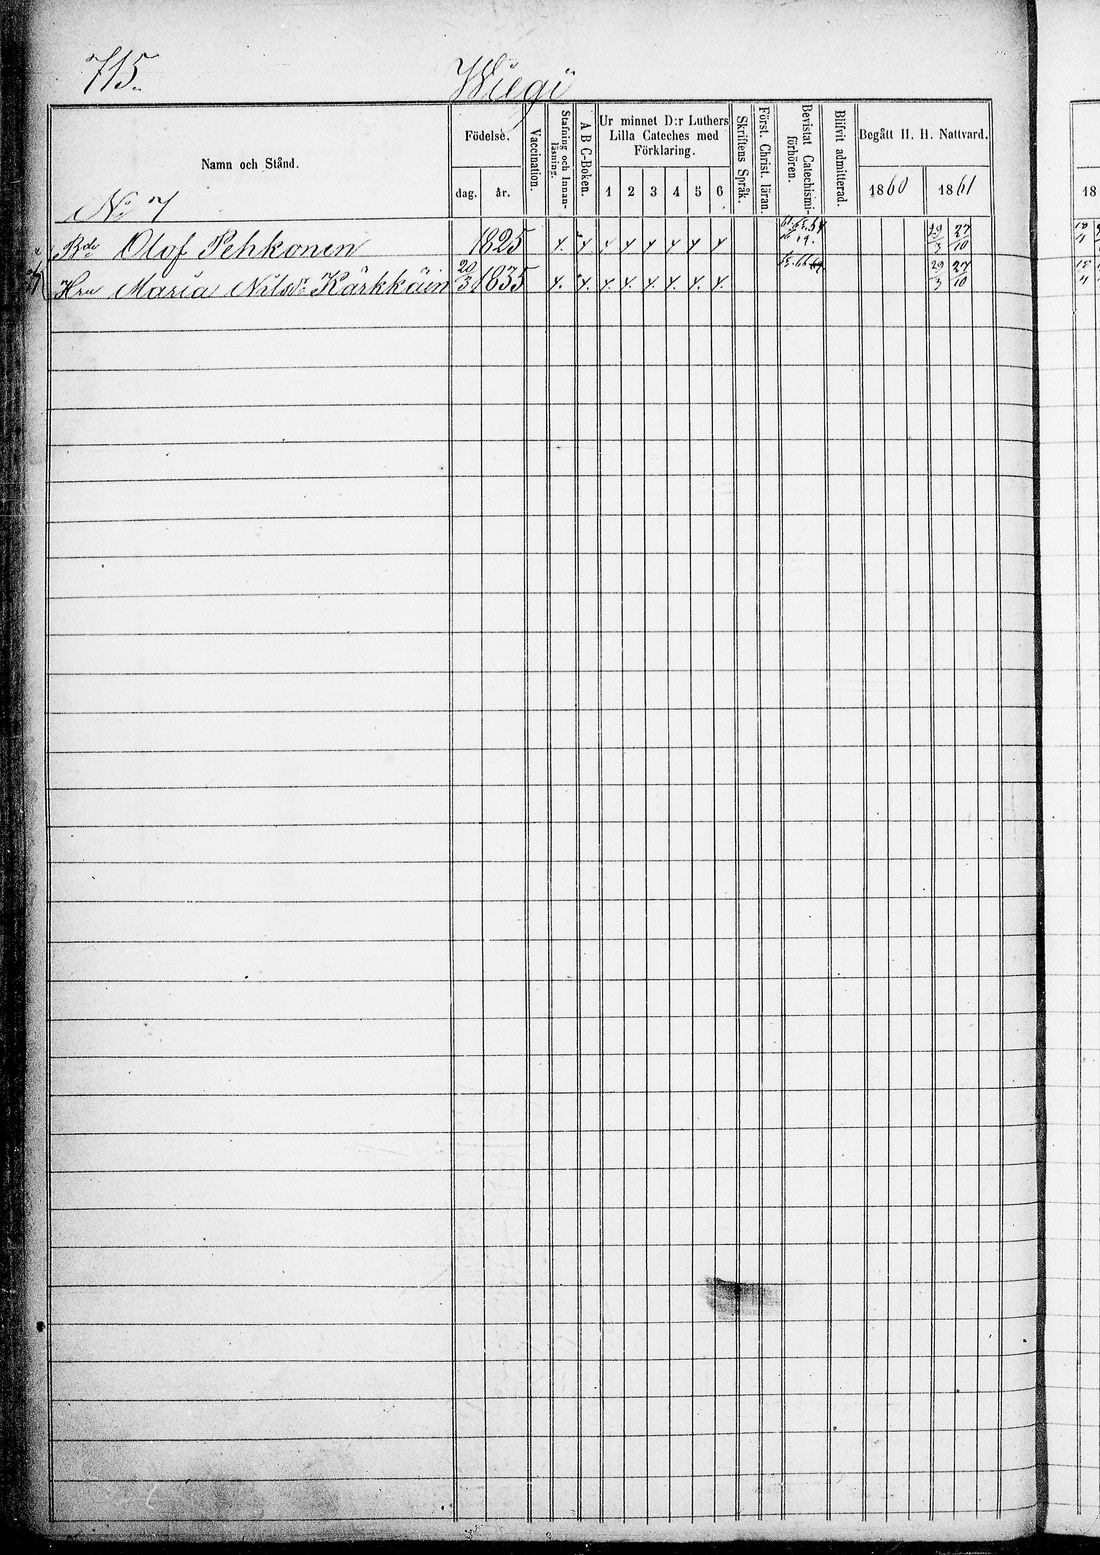 715.
Wiegi
Namn och Stånd.
Födelse.
dag.
år.
Vaccination.
Stafning och Innanläsning.
A B C-Boken.
Ur minnet D:r Luthers
Lilla Cateches med
Förklaring.
1 2 3 4 5 6
Skriftens Språk.
Först. Christ. läran.
Bevistat Catechismi-
förhören.
Blifvit admitterad.
Begått H. H. Nattvard.
1860 1861
18
No 7
Bde Olof Pehkonen 1825 29/3 27/10
Hru Maria Nilsd:r Kärkkäin 20/3 1835 29/3 27/10